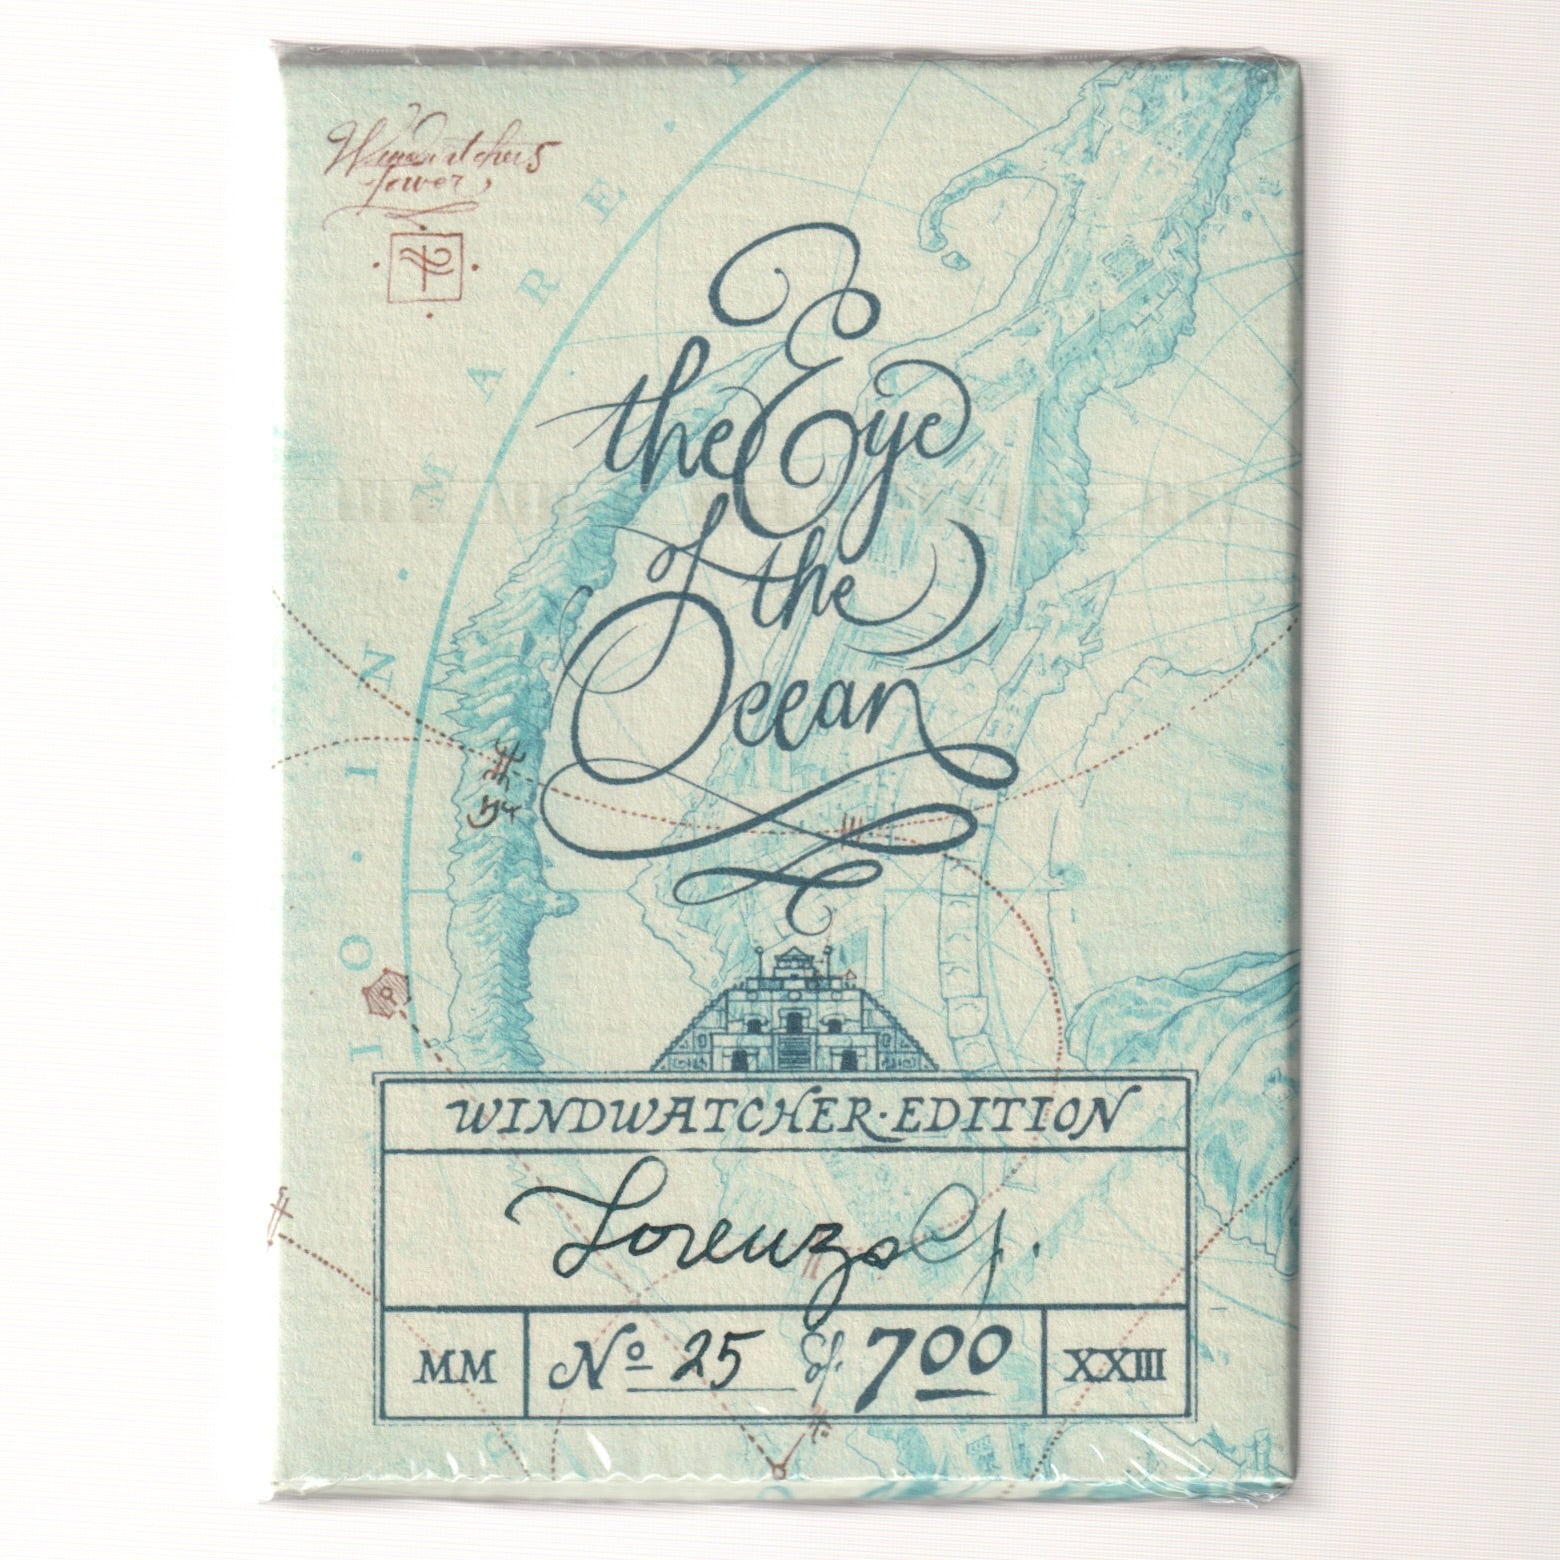 Windwatchers
tower
the Eye
of the
Ocean
MARE
IO · IN ·
WINDWATCHER·EDITION
Lorenzo G.
MM
Nº 25 of 700
XXIII